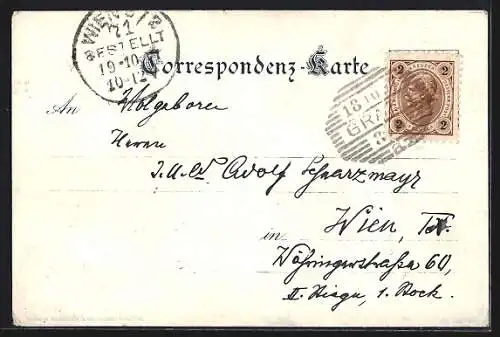 WIEN
71
BESTELLT
19·10
10-12
Correspondenz-Karte
18 10
GRA
2 2
2 2
An Wolgeboren
Herrn
J.U.Dr Adolf Schwarzmayr
Wien, IX.
in Währingerstraße 60,
II. Stiege, 1. Stock.